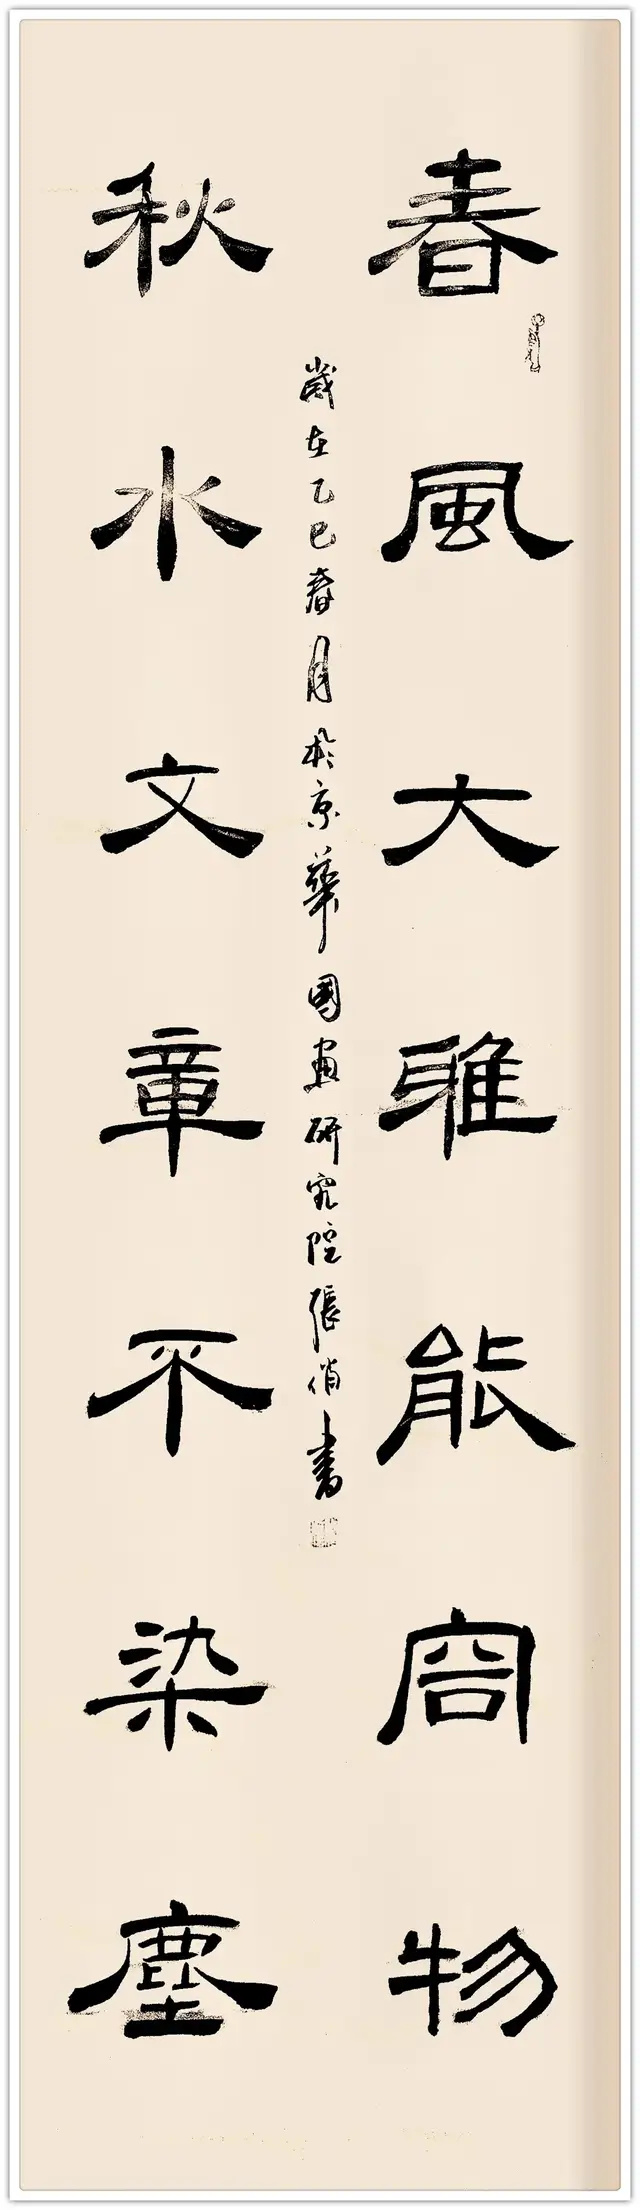 春風大雅能容物
秋水文章不染塵
歲在乙巳春月於京華國畫研究院張俏書